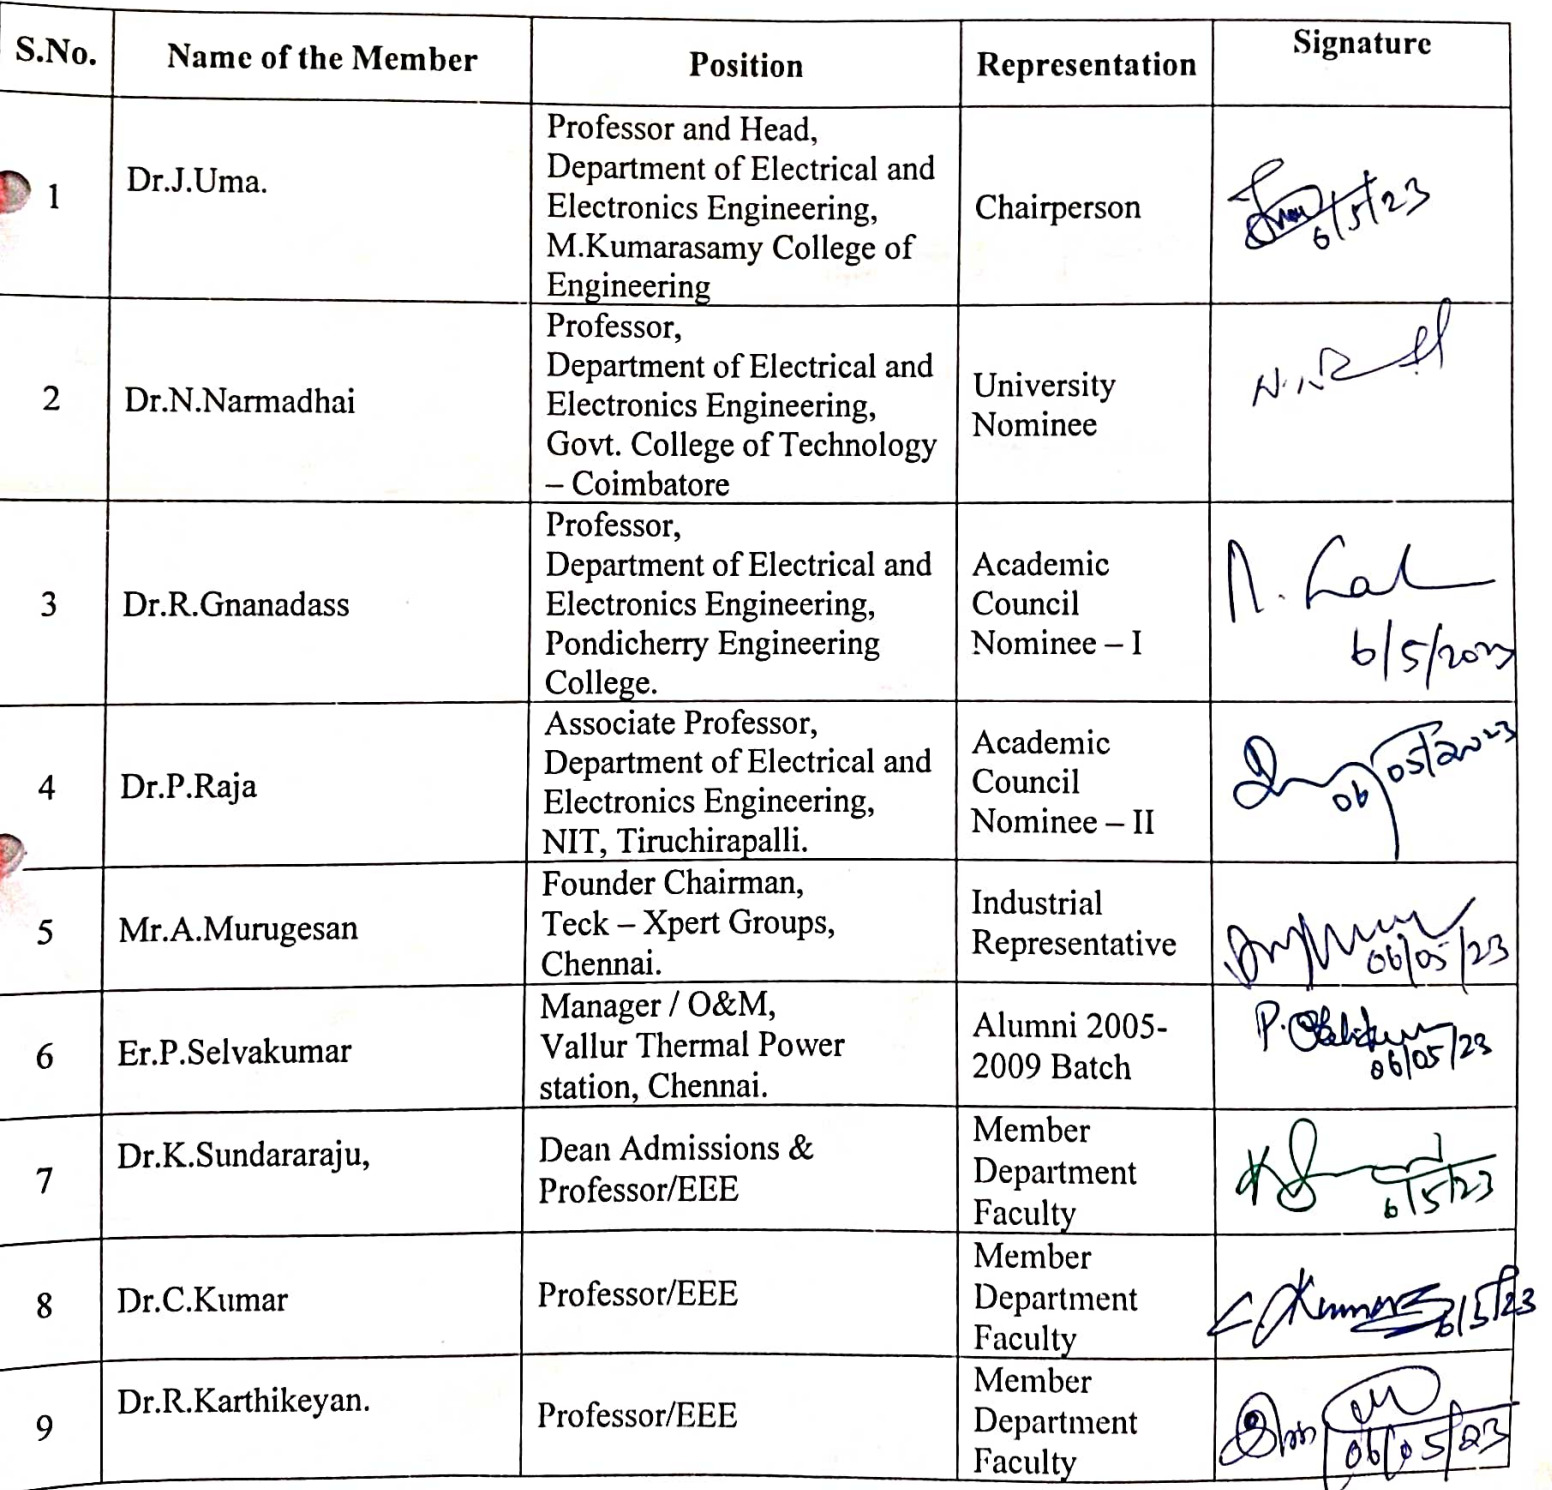 S.No. Name of the Member Position Representation Signature
1 Dr.J.Uma. Professor and Head,
Department of Electrical and
Electronics Engineering,
M.Kumarasamy College of
Engineering
Chairperson
6/5/23
2 Dr.N.Narmadhai Professor,
Department of Electrical and
Electronics Engineering,
Govt. College of Technology
– Coimbatore
University
Nominee
3 Dr.R.Gnanadass Professor,
Department of Electrical and
Electronics Engineering,
Pondicherry Engineering
College.
Academic
Council
Nominee – I
6/5/2023
4 Dr.P.Raja Associate Professor,
Department of Electrical and
Electronics Engineering,
NIT, Tiruchirapalli.
Academic
Council
Nominee – II
06/05/2023
5 Mr.A.Murugesan Founder Chairman,
Teck – Xpert Groups,
Chennai.
Industrial
Representative
06/05/23
6 Er.P.Selvakumar Manager / O&M,
Vallur Thermal Power
station, Chennai.
Alumni 2005-
2009 Batch
06/05/23
7 Dr.K.Sundararaju, Dean Admissions &
Professor/EEE
Member
Department
Faculty
6/5/23
8 Dr.C.Kumar Professor/EEE
Member
Department
Faculty
C.Kumar 6/5/23
9 Dr.R.Karthikeyan. Professor/EEE
Member
Department
Faculty
06/05/23